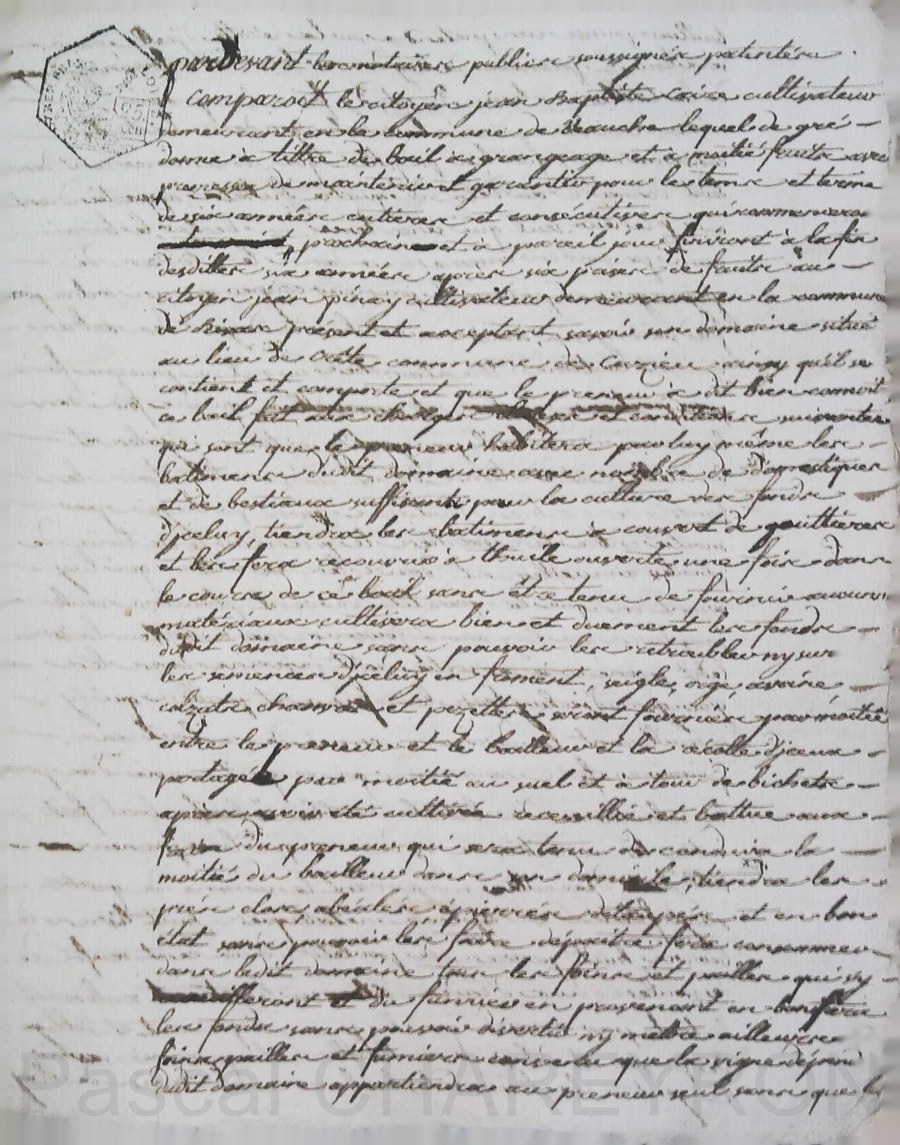 pardevant les notaires publics soussignés patentés
comparoit le citoyen jean Baptiste cultivateur
demeurant en la commune de lequel de gré
donne a tittre de bail a grangeage et a moitié fruits avec
promesse de maintenir et garantir pour le tems et terme
de six années entieres et consécutives qui commencera
prochaine et a pareil jour finiront à la fin
desdittes six années apres six prises de fruits au
citoyen jean pinay cultivateur demeurant en la commune
de présent et acceptant savoir son domaine situé
au lieu de cotte commune de Cuzieu ainsy qu'il se
contient et comporte et que le preneur a dit bien connoit
ce bail fait aux charges et conditions suivantes
qui sont que le preneur habitera par luy même les
batiments dudit domaine avec nombre de domestiques
et de bestiaux suffisants pour la culture des fonds
djceluy, tiendra les batiments a couvert de gouttieres
et les fera recouvrir à thuile ouverte une fois dans
le cours de ce bail sans être tenu de fournir aucuns
matériaux cultivera bien et duement les fonds
dudit domaine sans pouvoir les retroubler ny sur
les semences djceluy en froment, seigle, orge, avoine
colzats chanvre et pezettes seront fournies par moitié
entre le preneur et le bailleur et la récolte djceux
partagée par moitié au suel et à tour de bichets
après avoir été cultivée recueillie et battue aux
frais du preneur qui sera tenu de conduire la
moitié du bailleur dans son domicile, tiendra les
prés clos, abéalés épierrés détaupés et en bon
état sans pouvoir les faire dépaitre fera consommer
dans ledit domaine tous les foins et pailles qui sy
et du fumier en provenant en
les fonds sans pouvoir divertir ny mettre ailleurs
foins pailles et fumiers convenu que la vigne
dudit domaine appartiendra au preneur seul sans que le
Pascal CHALEYRON